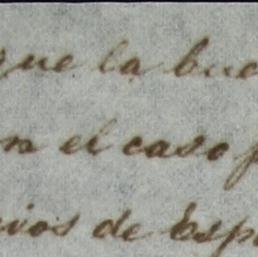 que la bue
en el caso p
cios de Espa